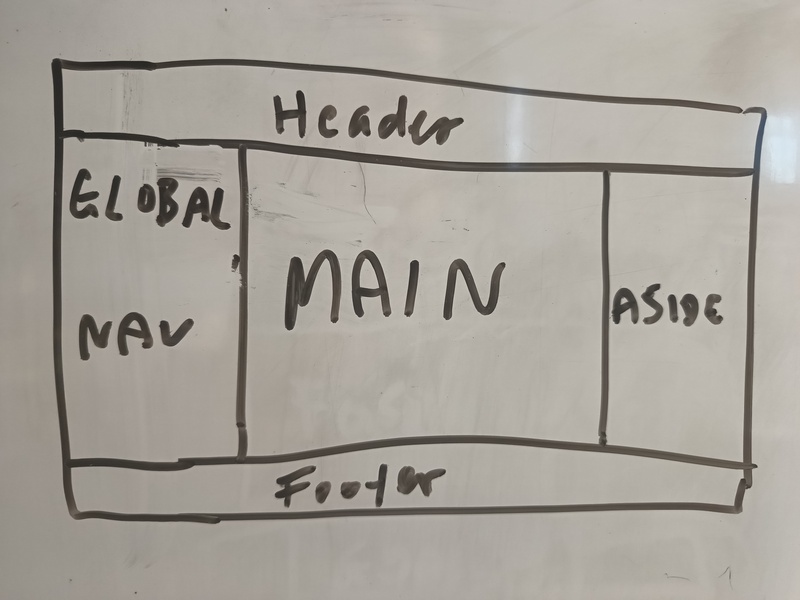 Header
GLOBAL
NAV
MAIN
ASIDE
Footer